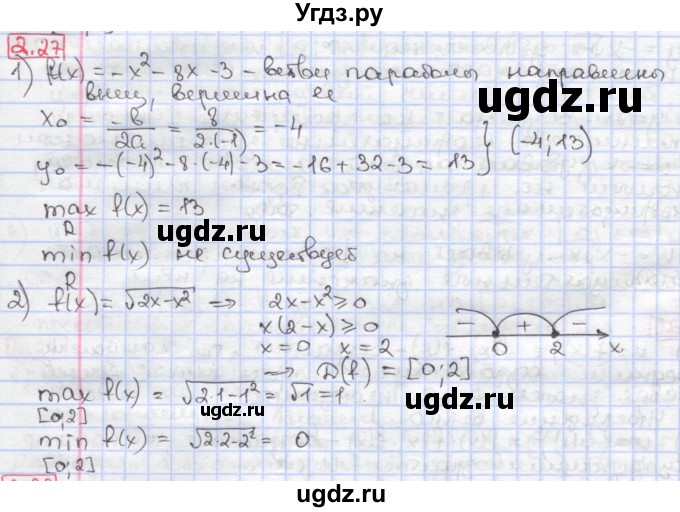 Угдз.ру
2.27
1) f(x) = -x² - 8x - 3 - ветви параболы направлены
вниз, вершина ее
x₀ = -b/2a = 8/2·(-1) = -4
y₀ = -(-4)² - 8·(-4) - 3 = -16 + 32 - 3 = 13 } (-4; 13)
max f(x) = 13
R
ugdz.ru
ugdz.ru
min f(x) не существует
R
2) f(x) = √2x-x² ⇒ 2x - x² ⩾ 0
x(2-x) ⩾ 0
x = 0 x = 2
- + -
0 2 x
⇒ D(f) = [0; 2]
ugdz.ru
max f(x) = √2·1-1² = √1 = 1
[0;2]
ugdz.ru
min f(x) = √2·2-2² = 0
[0;2]
ugdz.ru